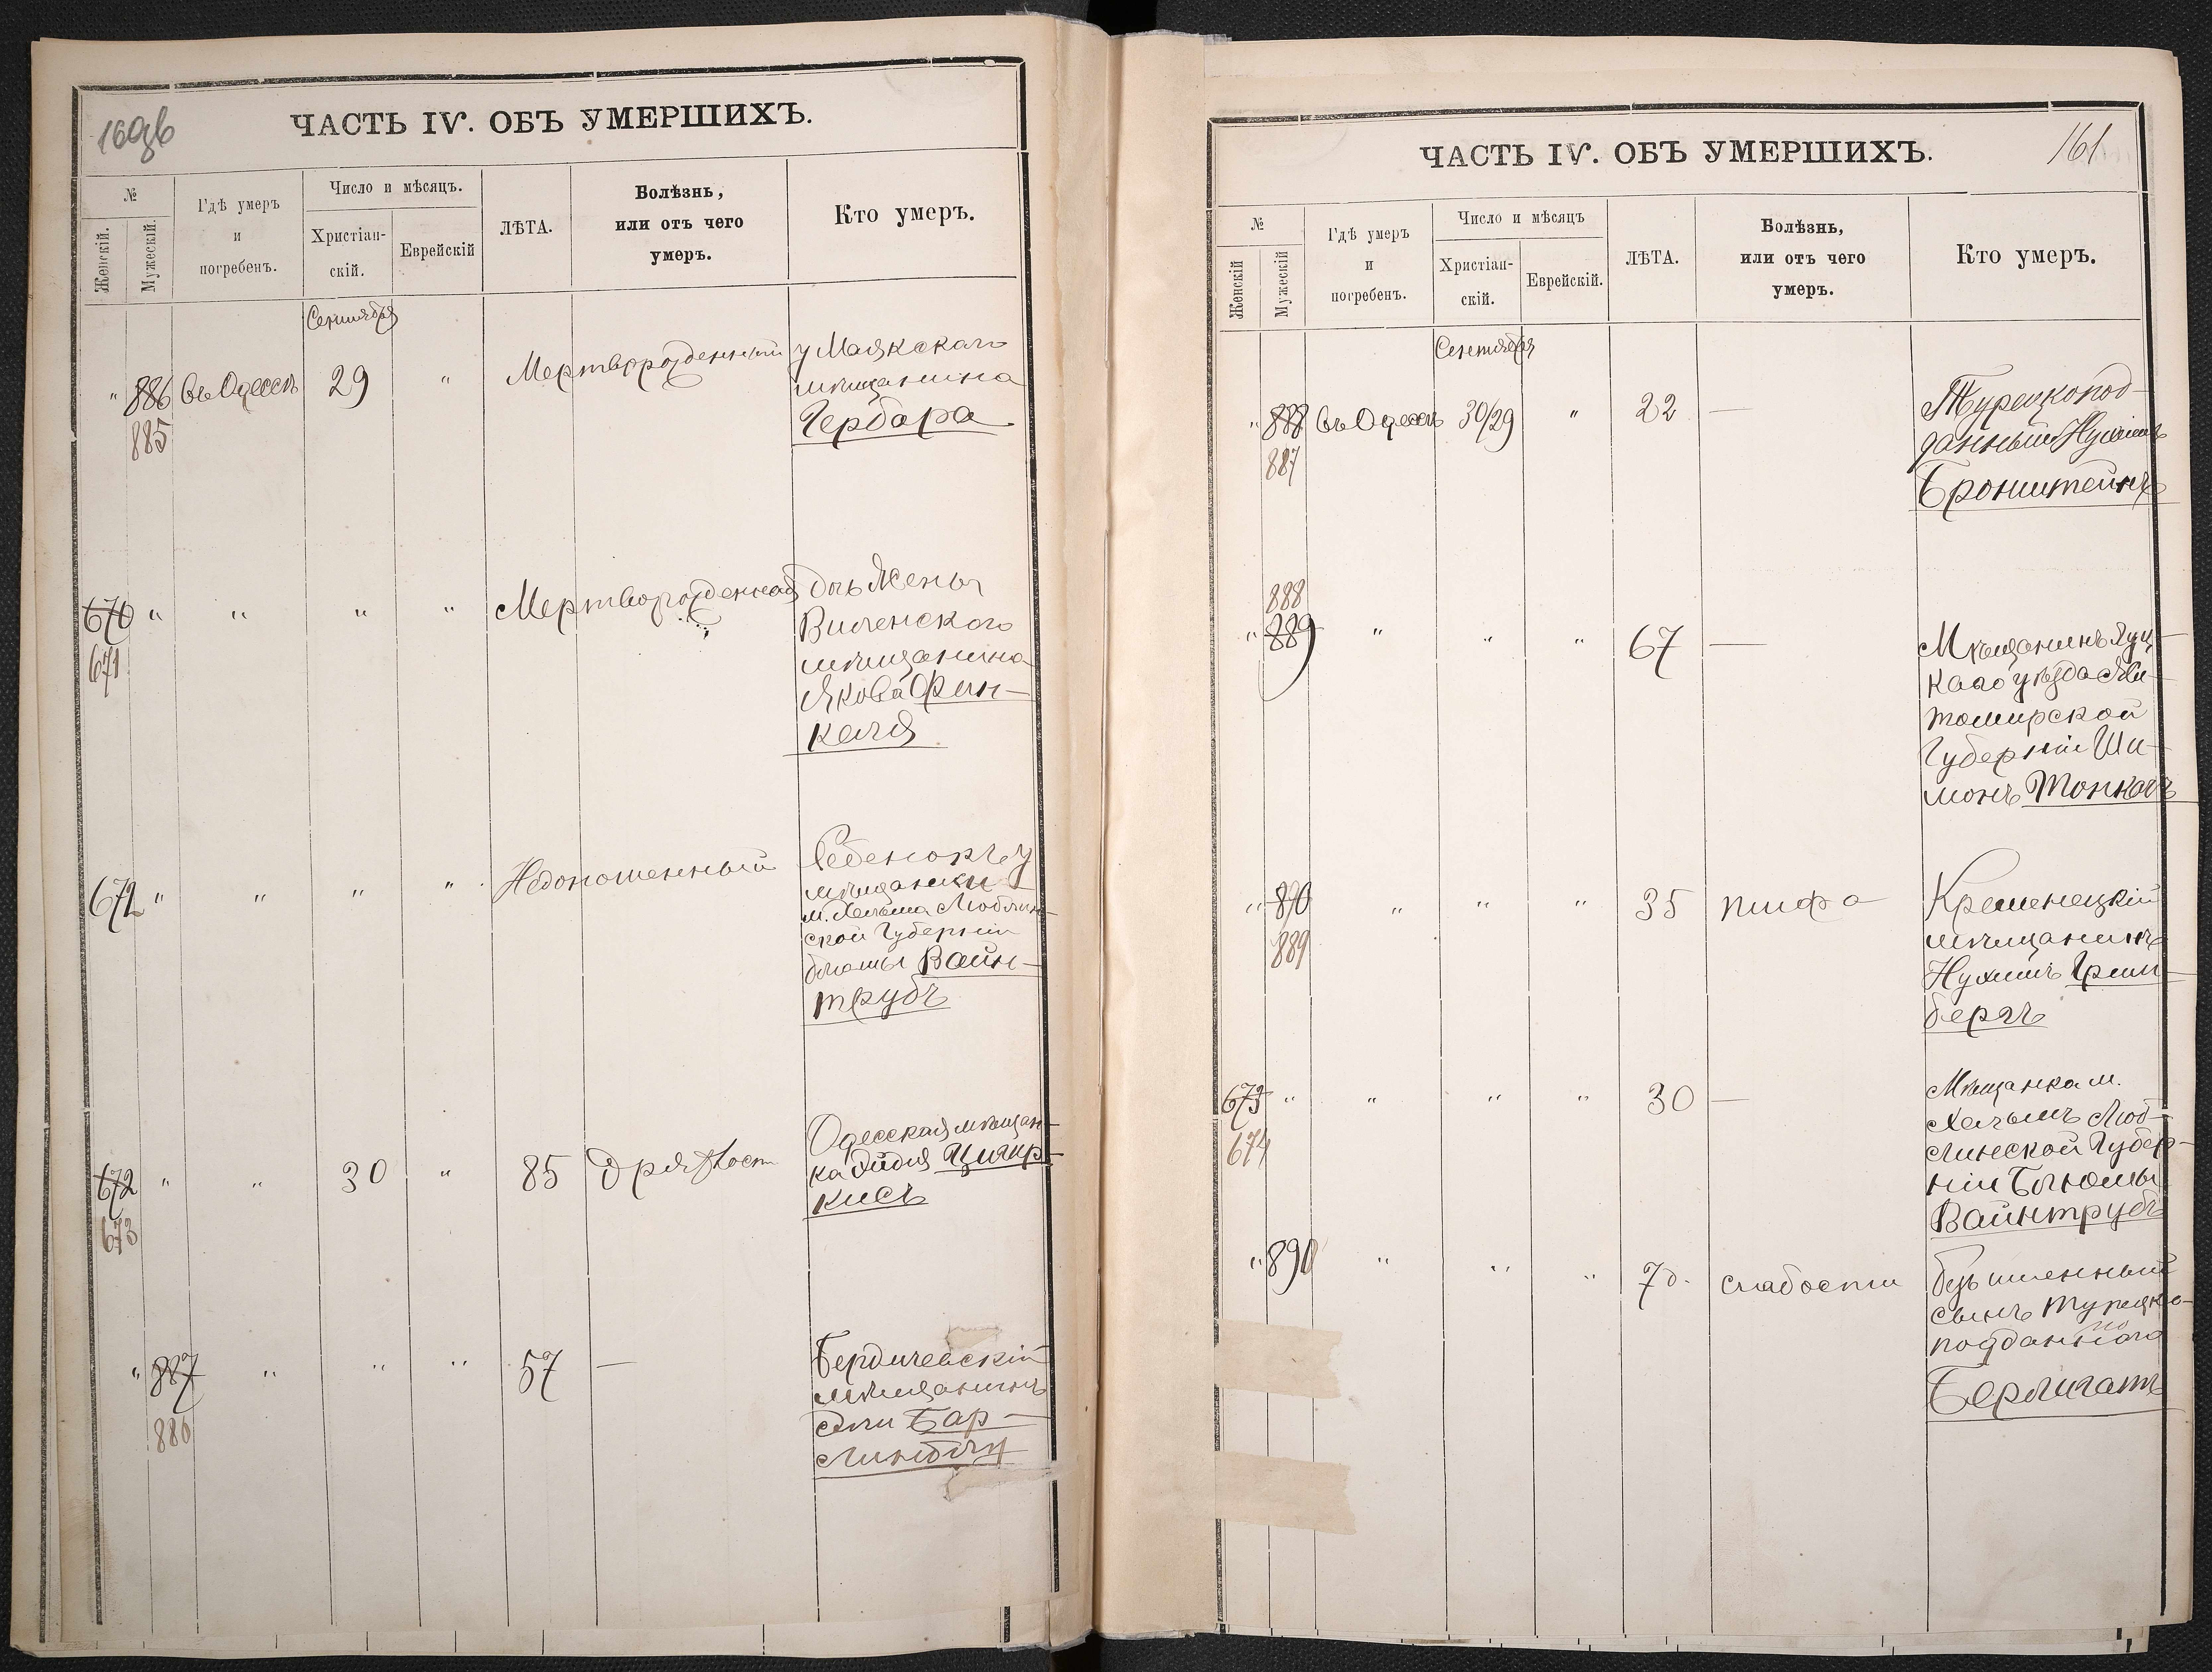 160об
ЧАСТЬ IV. ОБЪ УМЕРШИХЪ.
№
Женскій.
Мужескій.
Гдѣ умеръ
и
погребенъ.
Число и мѣсяцъ.
Христіан-
скій.
Еврейскій
ЛѢТА.
Болѣзнь,
или отъ чего
умеръ.
Кто умеръ.
Сентября
" 886 въ Одессѣ 29 " Мертворожденный у Маякскаго
885
мѣщанина
Гербера
670 " " " " Мертворожденная дочь Жены
671
Виленскаго
мѣщанина
Якова Фин-
келя
672 " " " " Недоношенный Ребенокъ у
мѣщанки
м. Хельма Люблин-
ской Губерніи
Вайн-
трубъ
672 " " 30 " 85 Дряхлост Одесская мѣщан-
673
ка
кисъ
" 887 " " " 57 — Бердичевскій
886
мѣщанинъ
Бар-
161
ЧАСТЬ IV. ОБЪ УМЕРШИХЪ.
№
Женскій
Мужескій
Гдѣ умеръ
и
погребенъ.
Число и мѣсяцъ
Христіан-
скій.
Еврейскій.
ЛѢТА.
Болѣзнь,
или отъ чего
умеръ.
Кто умеръ.
Сентября
" 888 въ Одессѣ 30/29 " 22 — Турецкопод-
887
данный
Бронштейнъ
888
" 889 " " " 67 — Мѣщанинъ Луц-
каго уѣзда Жи-
томирской
Губерніи Ши-
монъ
" 890 " " " 35 тифа Кременецкій
889
мѣщанинъ
Нухимъ Грин-
бергъ
673 " " " " 30 — Мѣщанка м.
674
Хельмъ Люб-
линской Губер-
ніи Блюмы
Вайнтрубъ
" 890 " " " 7 д. слабости безъименный
сынъ Турецко-
подданнаго